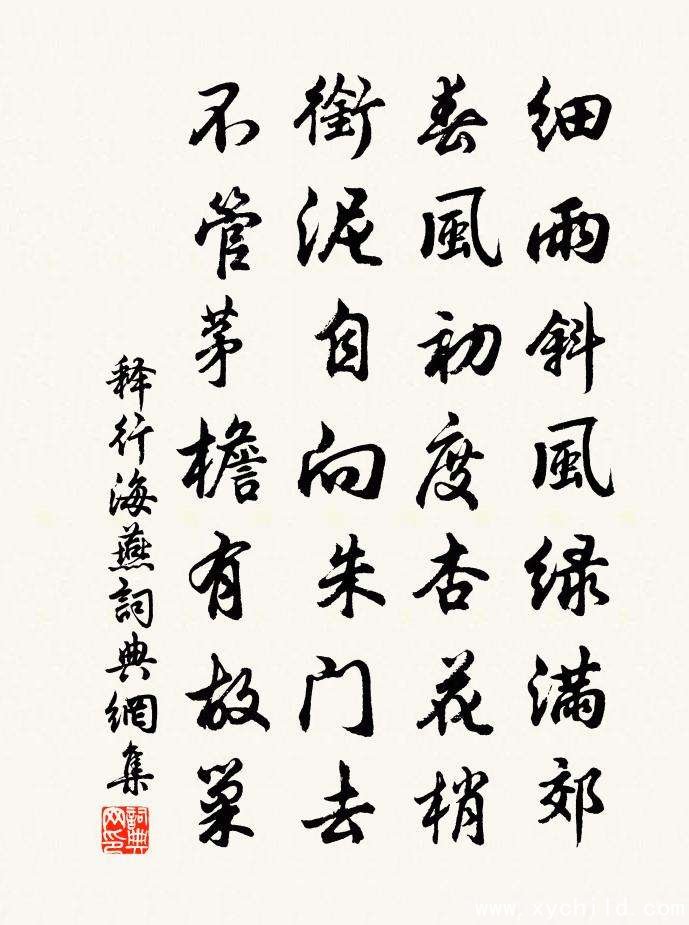 细雨斜風緑滿郊
春風初度杏花梢
銜泥自向朱门去
不管茅檐有故巢
释行海燕詞典網集
詞典网印
www.xychild.com